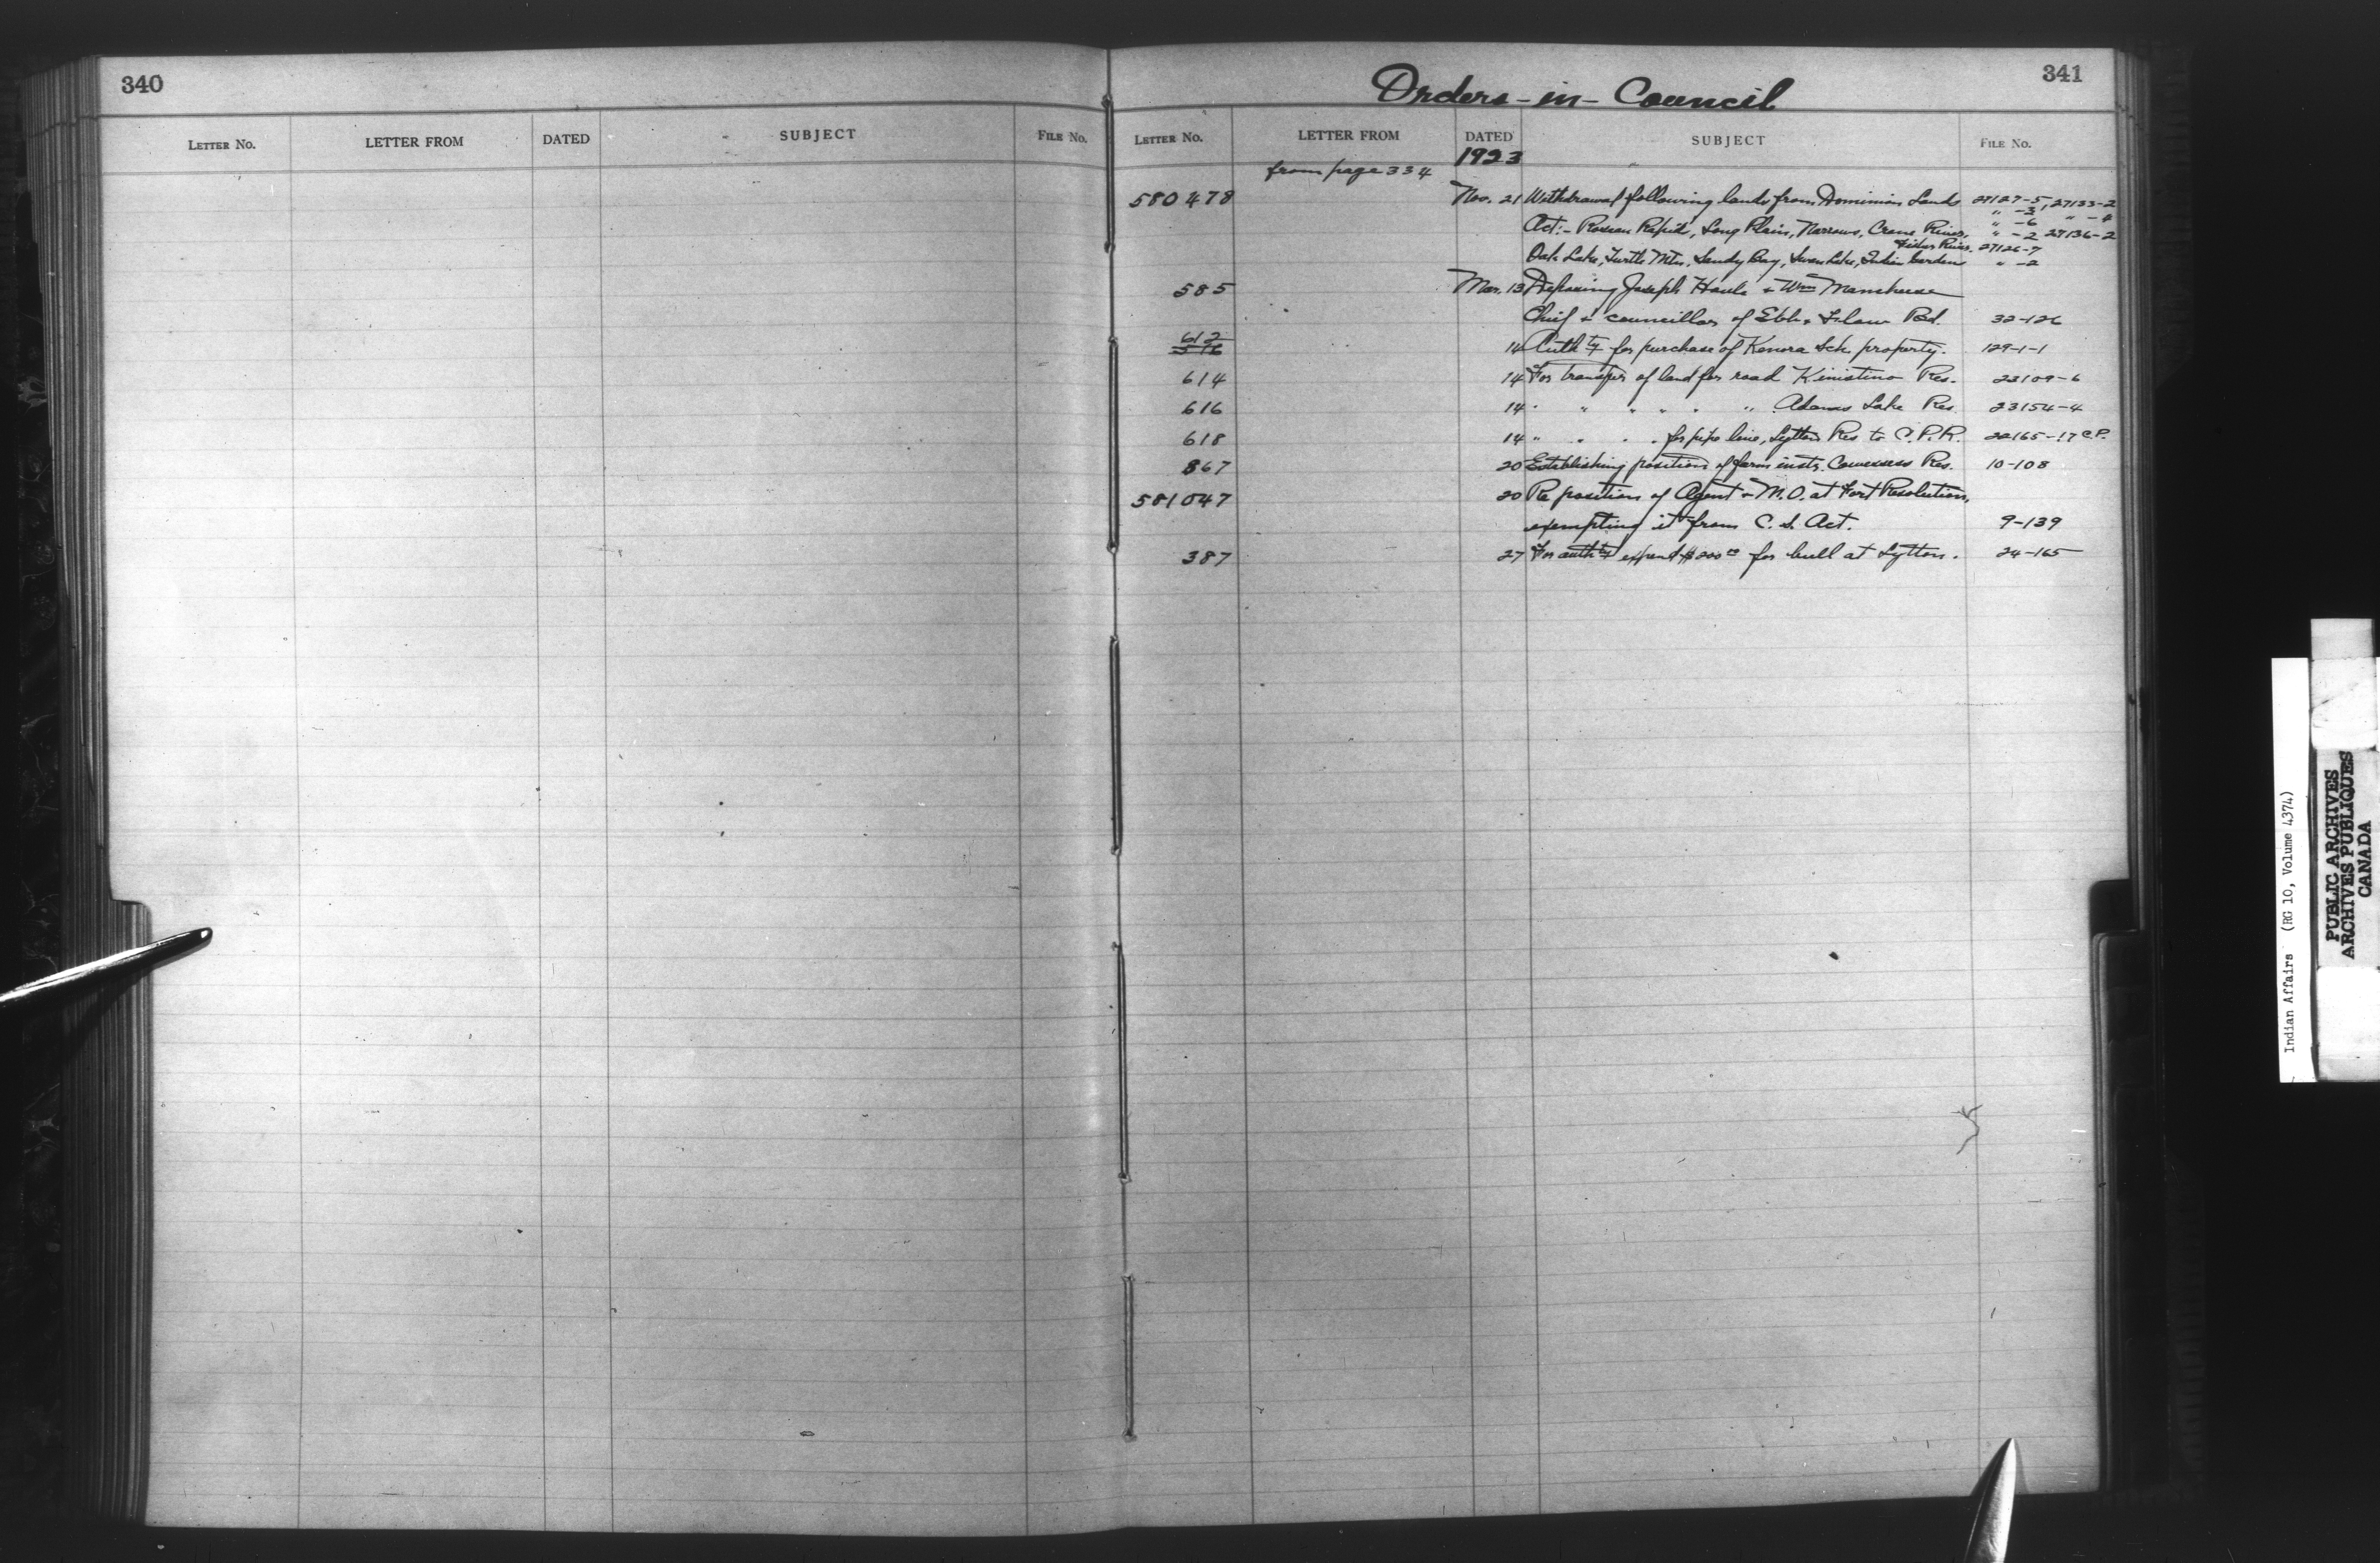 340
LETTER NO. LETTER FROM DATED SUBJECT FILE No.
Orders-in-Council
341
LETTER NO. LETTER FROM DATED SUBJECT FILE No.
1923
from page 334
580478 Nov. 21 Withdrawal following lands from Dominion Lands 27127-5, 27133-2
" -3, " -4
" -6
Act:- Roseau Rapid, Long Plain, Narrows, Crane River, " -2 27136-2
Fisher River. 27126-7
Oak Lake, Turtle Mtn, Sandy Bay, Swan Lake, Indian Gardens " -2
585 Mar. 13 Deposing Joseph Houle + Wm
Chief + councillor of Ebb & Flow Bd. 32-126
612
14 Auth'ty for purchase of Kenora Sch. property. 129-1-1
614 14 For transfer of land for road Kinistino Res. 23109-6
616 14 " " " " " " Adams Lake Res. 23154-4
618 14 " " " " for pipe line, Lytton Res to C.P.R. 22165-17 C.P.
867 20 Establishing position of farm instr. Cowessess Res. 10-108
581047 20 Re position of Agent & M.O. at Fort Resolution,
exempting it from C. S. Act. 9-139
387 27 For auth'ty expend $200.00 for bull at Lytton. 24-165
Indian Affairs (RG 10, Volume 4374)
PUBLIC ARCHIVES
ARCHIVES PUBLIQUES
CANADA